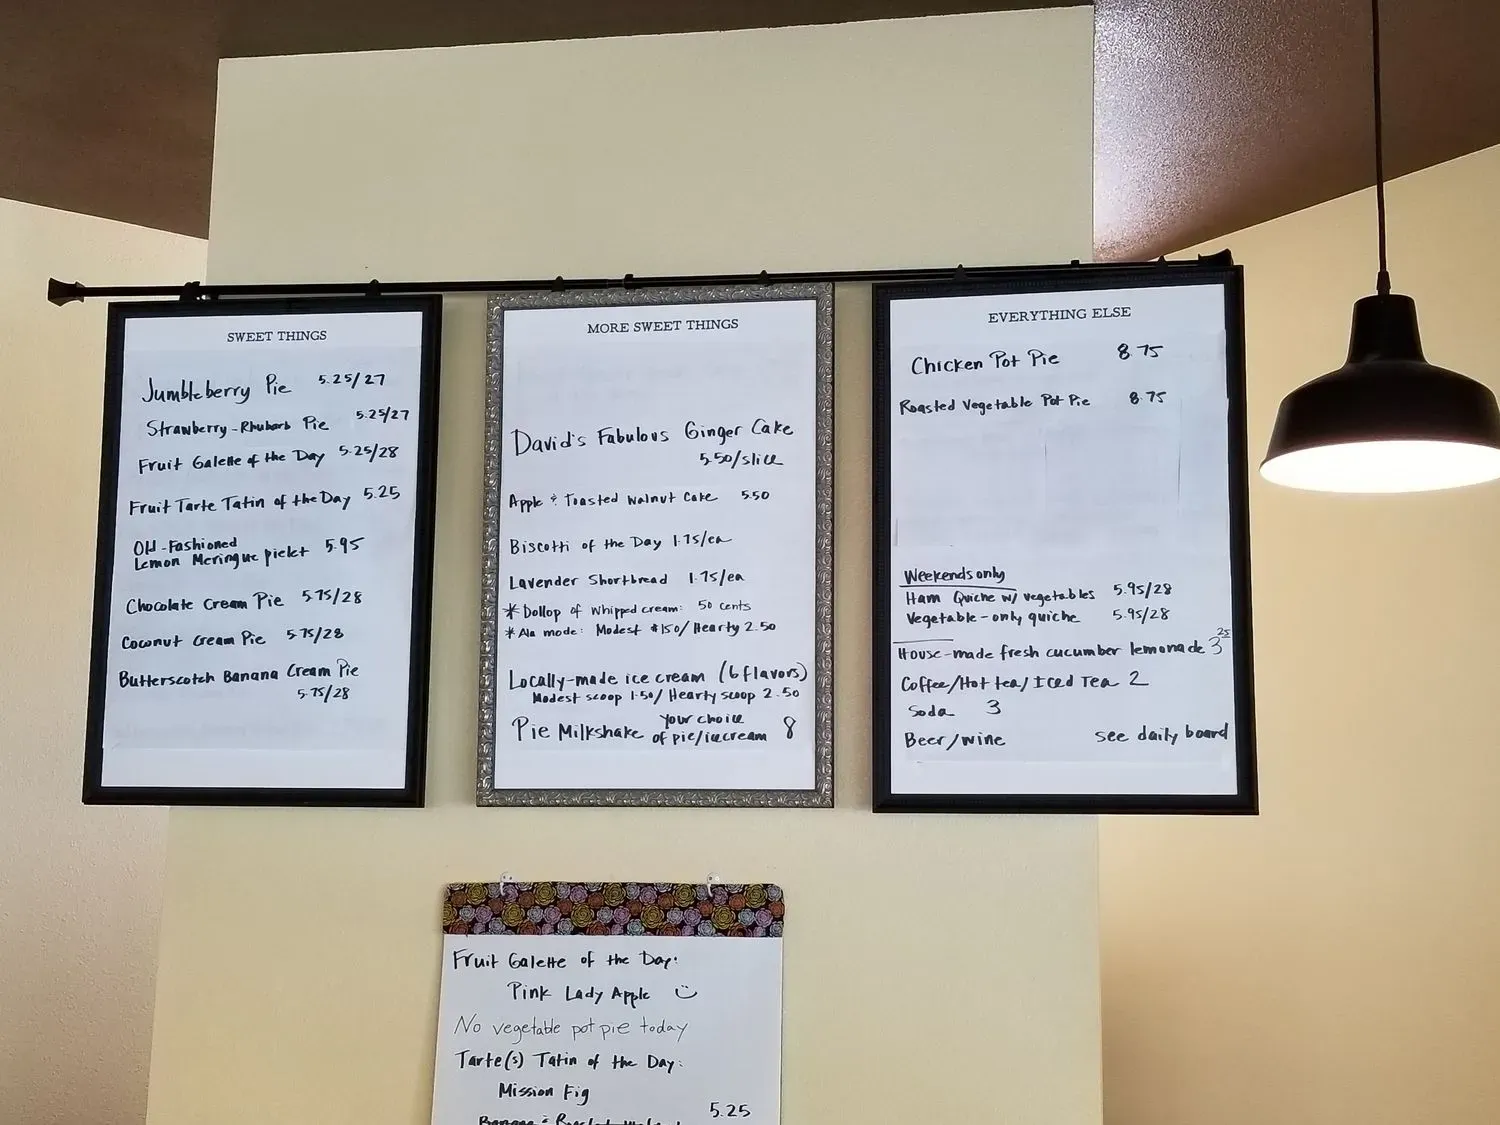 SWEET THINGS
Jumbleberry Pie 5.25/27
Strawberry-Rhubarb Pie 5.25/27
Fruit Galette of the Day 5.25/28
Fruit Tarte Tatin of the Day 5.25
Old-Fashioned
Lemon Meringue pielet 5.95
Chocolate Cream Pie 5.75/28
Coconut Cream Pie 5.75/28
Butterscotch Banana Cream Pie
5.75/28
MORE SWEET THINGS
David's Fabulous Ginger Cake
5.50/slice
Apple & Toasted Walnut Cake 5.50
Biscotti of the Day 1.75/ea
Lavender Shortbread 1.75/ea
* Dollop of Whipped cream: 50 cents
* Ala mode: Modest $1.50/ Hearty 2.50
Locally-made ice cream (6 flavors)
Modest scoop 1.50/ Hearty scoop 2.50
Pie Milkshake your choice
of pie/icecream 8
EVERYTHING ELSE
Chicken Pot Pie 8.75
Roasted Vegetable Pot Pie 8.75
Weekends only
Ham Quiche w/ vegetables 5.95/28
Vegetable-only quiche 5.95/28
House-made fresh cucumber lemonade 3 25
Coffee/Hot tea/Iced Tea 2
Soda 3
Beer/wine see daily board
Fruit Galette of the Day:
Pink Lady Apple
No vegetable pot pie today
Tarte(s) Tatin of the Day:
Mission Fig
5.25
Banana &